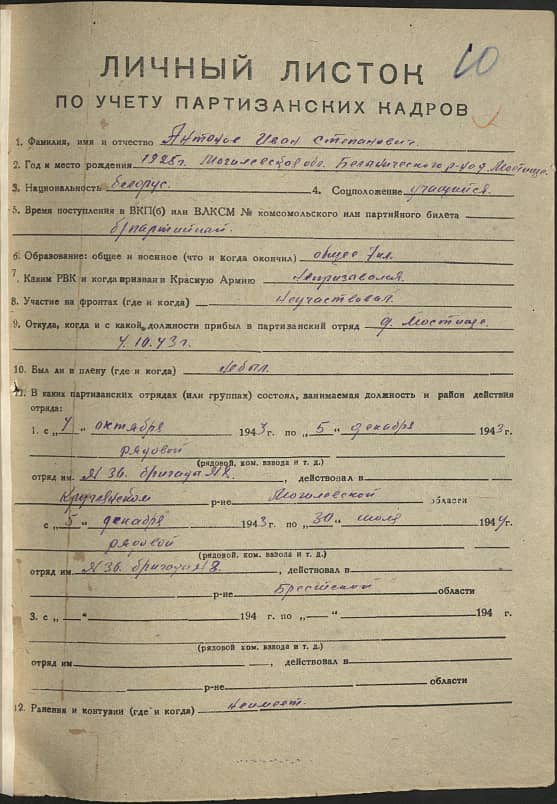 10
ЛИЧНЫЙ ЛИСТОК
ПО УЧЕТУ ПАРТИЗАНСКИХ КАДРОВ
1. Фамилия, имя и отчество Антонов Иван Степанович.
2. Год и место рождения 1928г. Могилевская обл. Белынического р-на д. Мостище.
3. Национальность белорус. 4. Соцположение учащийся.
5. Время поступления в ВКП(б) или ВЛКСМ № комсомольского или партийного билета
б/партийный.
6. Образование: общее и военное (что и когда окончил) общее 7 кл.
7. Каким РВК и когда призван в Красную Армию Непризывался.
8. Участие на фронтах (где и когда) Неучаствовал.
9. Откуда, когда и с какой должности прибыл в партизанский отряд д. Мостище.
10.43г.
10. Был ли в плену (где и когда) небыл.
11. В каких партизанских отрядах (или группах) состоял, занимаемая должность и район действия
отряда:
1. с „ “ октября 1943 г. по „5“ декабря 1943 г.
рядовой
(рядовой, ком. взвода и т. д.)
отряд им. № 36. бригада № 8. , действовал в
Круглянском р-не Могилевской области
с „5“ декабря 1943 г. по „30“ июля 1944 г.
рядовой
(рядовой, ком. взвода и т. д.)
отряд им. № 36. бригада № 8. , действовал в
р-не Брестской области
3. с „ “ 194 г. по „ “ 194 г.
(рядовой, ком. взвода и т. д.)
отряд им. , действовал в
р-не области
12. Ранения и контузии (где и когда) Неимеет.